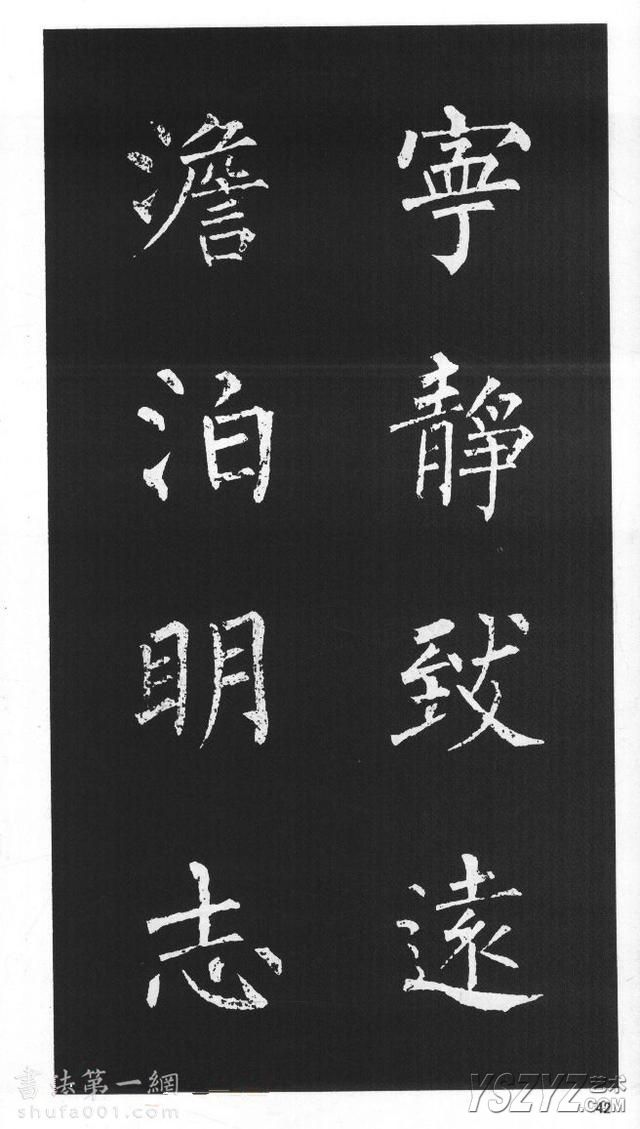 寧靜致遠
澹泊明志
書法第一網
shufa001.com
YSZYZ艺术
.COM
42